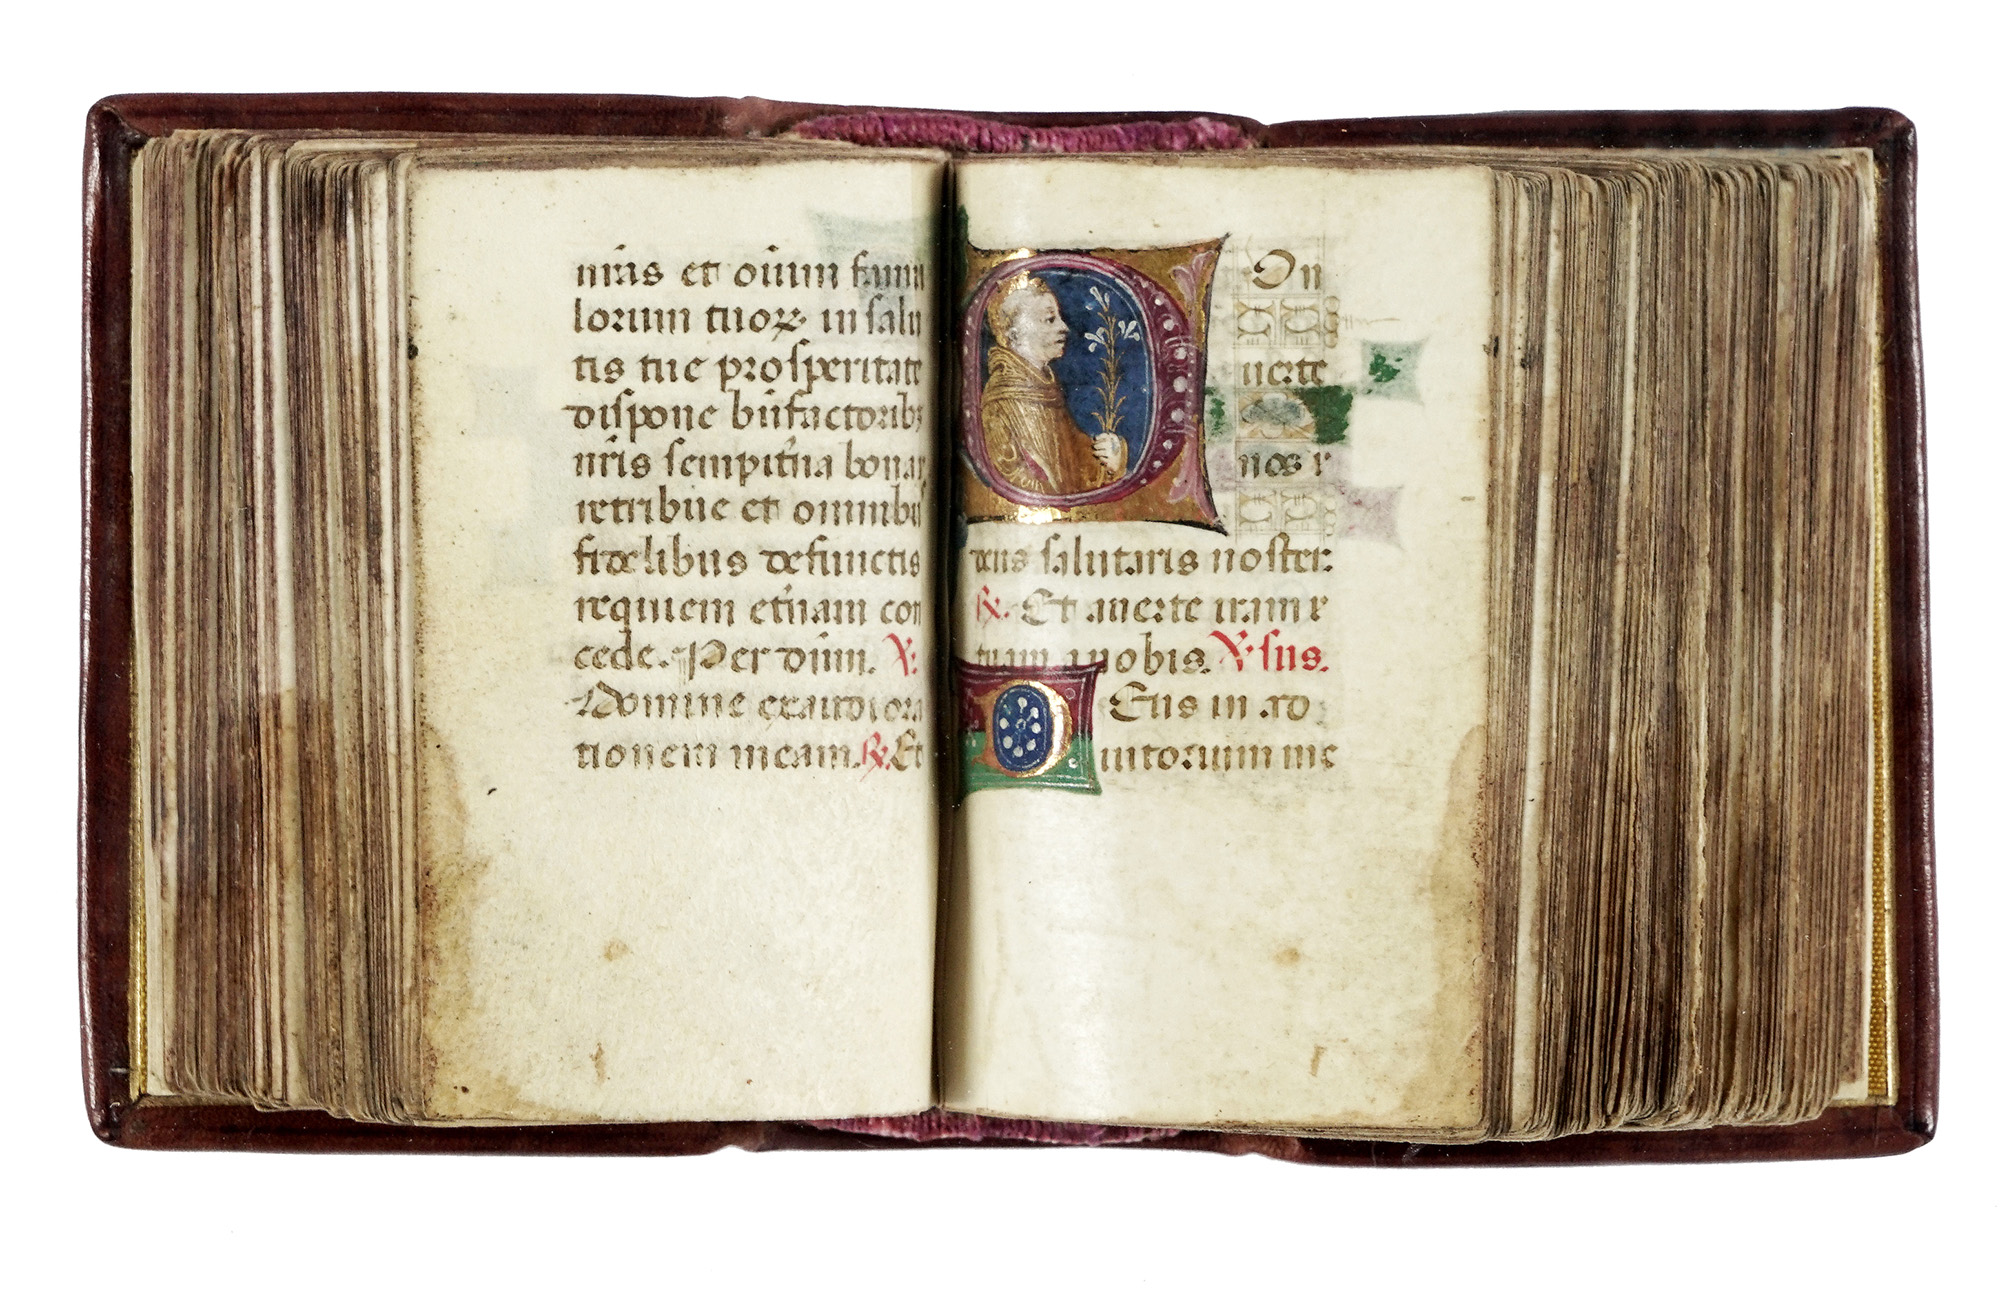 nr̃as et oĩum famu
lorum tuoꝝ in salu
tis tue prosperitate
dispone bñfactoribꝫ
nr̃is sempit̃na bona
retribue et omnibus
fidelibus defunctis
requiem et̃nam con
cede. Per dñm. ℣.
Domine exaudi ora
tionem meam. ℞. Et
On
uerte
nos
deus salutaris noster:
℞. Et auerte iram
tuam a nobis. ℣sus.
Eus in ad
iutorium me